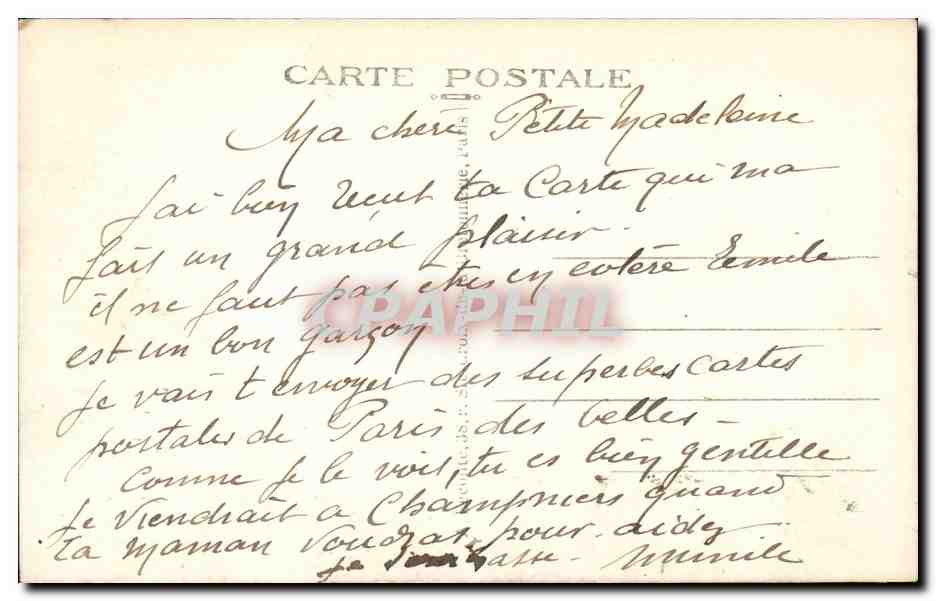 CARTE POSTALE
Ma chère Petite Madeleine
J'ai bien reçut ta Carte qui ma
fait un grand plaisir -
il ne faut pas êtres en colère Emile
est un bon garçon
je vais t envoyer des superbes cartes
postales de Paris des belles -
Comme je le vois, tu es bien gentille
je viendrait a Champniers quand
ta maman voudras pour aider
je embrasse - Mimile
CPAPHIL